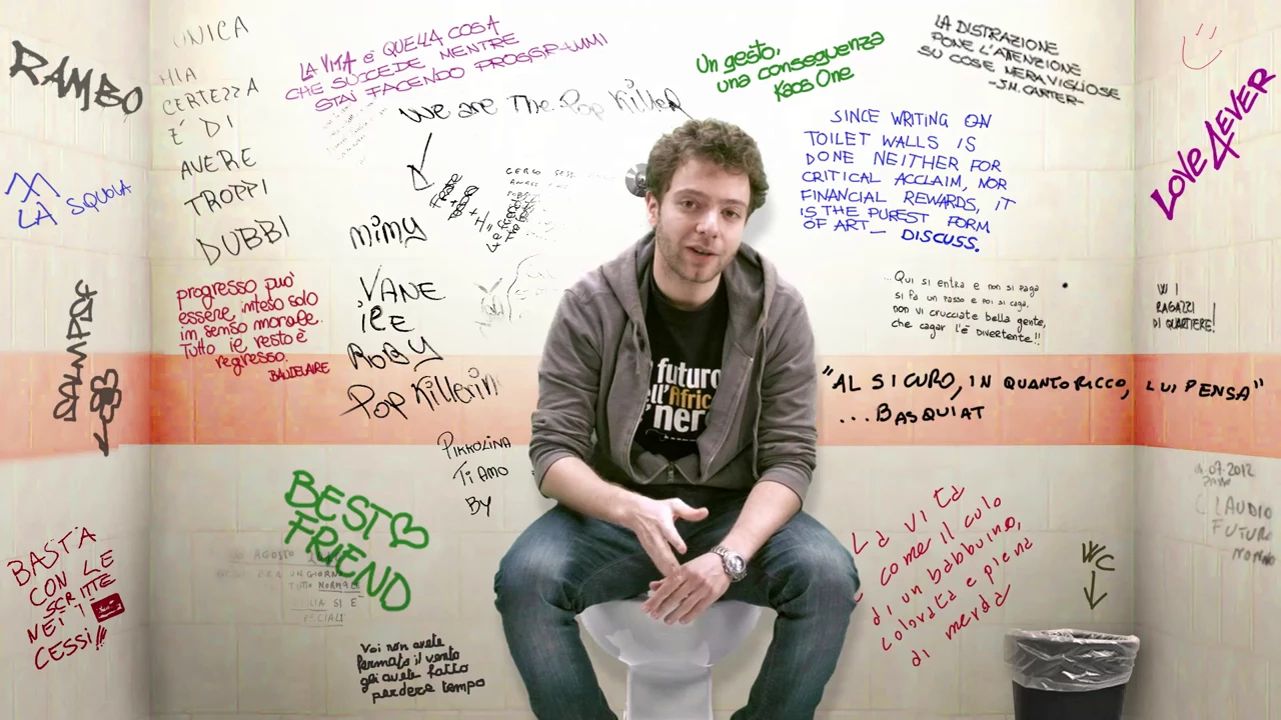 RAMBO
UNICA
MIA
CERTEZZA
E' DI
AVERE
TROPPI
DUBBI
LA VITA è QUELLA COSA
CHE SUCCEDE MENTRE
STAI FACENDO PROGRAMMI
We are The Pop Killer
Un gesto,
una conseguenza
Kaos One
LA DISTRAZIONE
PONE L'ATTENZIONE
SU COSE MERAVIGLIOSE
-J.N. CARTER-
LOVE 4EVER
SINCE WRITING ON
TOILET WALLS IS
DONE NEITHER FOR
CRITICAL ACCLAIM, NOR
FINANCIAL REWARDS, IT
IS THE PUREST FORM
OF ART— DISCUSS.
LA SQUOLA
mimy
VANE
iRE
ROBY
Pop Killerin
progresso può
essere inteso solo
in senso morale.
Tutto il resto è
regresso.
BAUDELAIRE
...Qui si entra e non si paga
si fa un passo e poi si caga,
non vi crucciate bella gente,
che cagar l'è divertente!!
W I
RAGAZZI
DI QUARTIERE!
futuro
ell'Africa
nero
"AL SICURO, IN QUANTO RICCO, LUI PENSA"
...BASQUIAT
PIKKOLINA
TI AMO
BY
BEST
FRIEND
AGOSTO
UN GIORNO
TUTTO NORMALE
SI È
04.07.2012
CLAUDIO
FUTURO
BASTA
CON LE
SCRITTE
NEI
CESSI!!
Voi non avete
fermato il vento
gli avete fatto
perdere tempo
La vita
come il culo
di un babbuino,
colorata e piena
di merda
WC